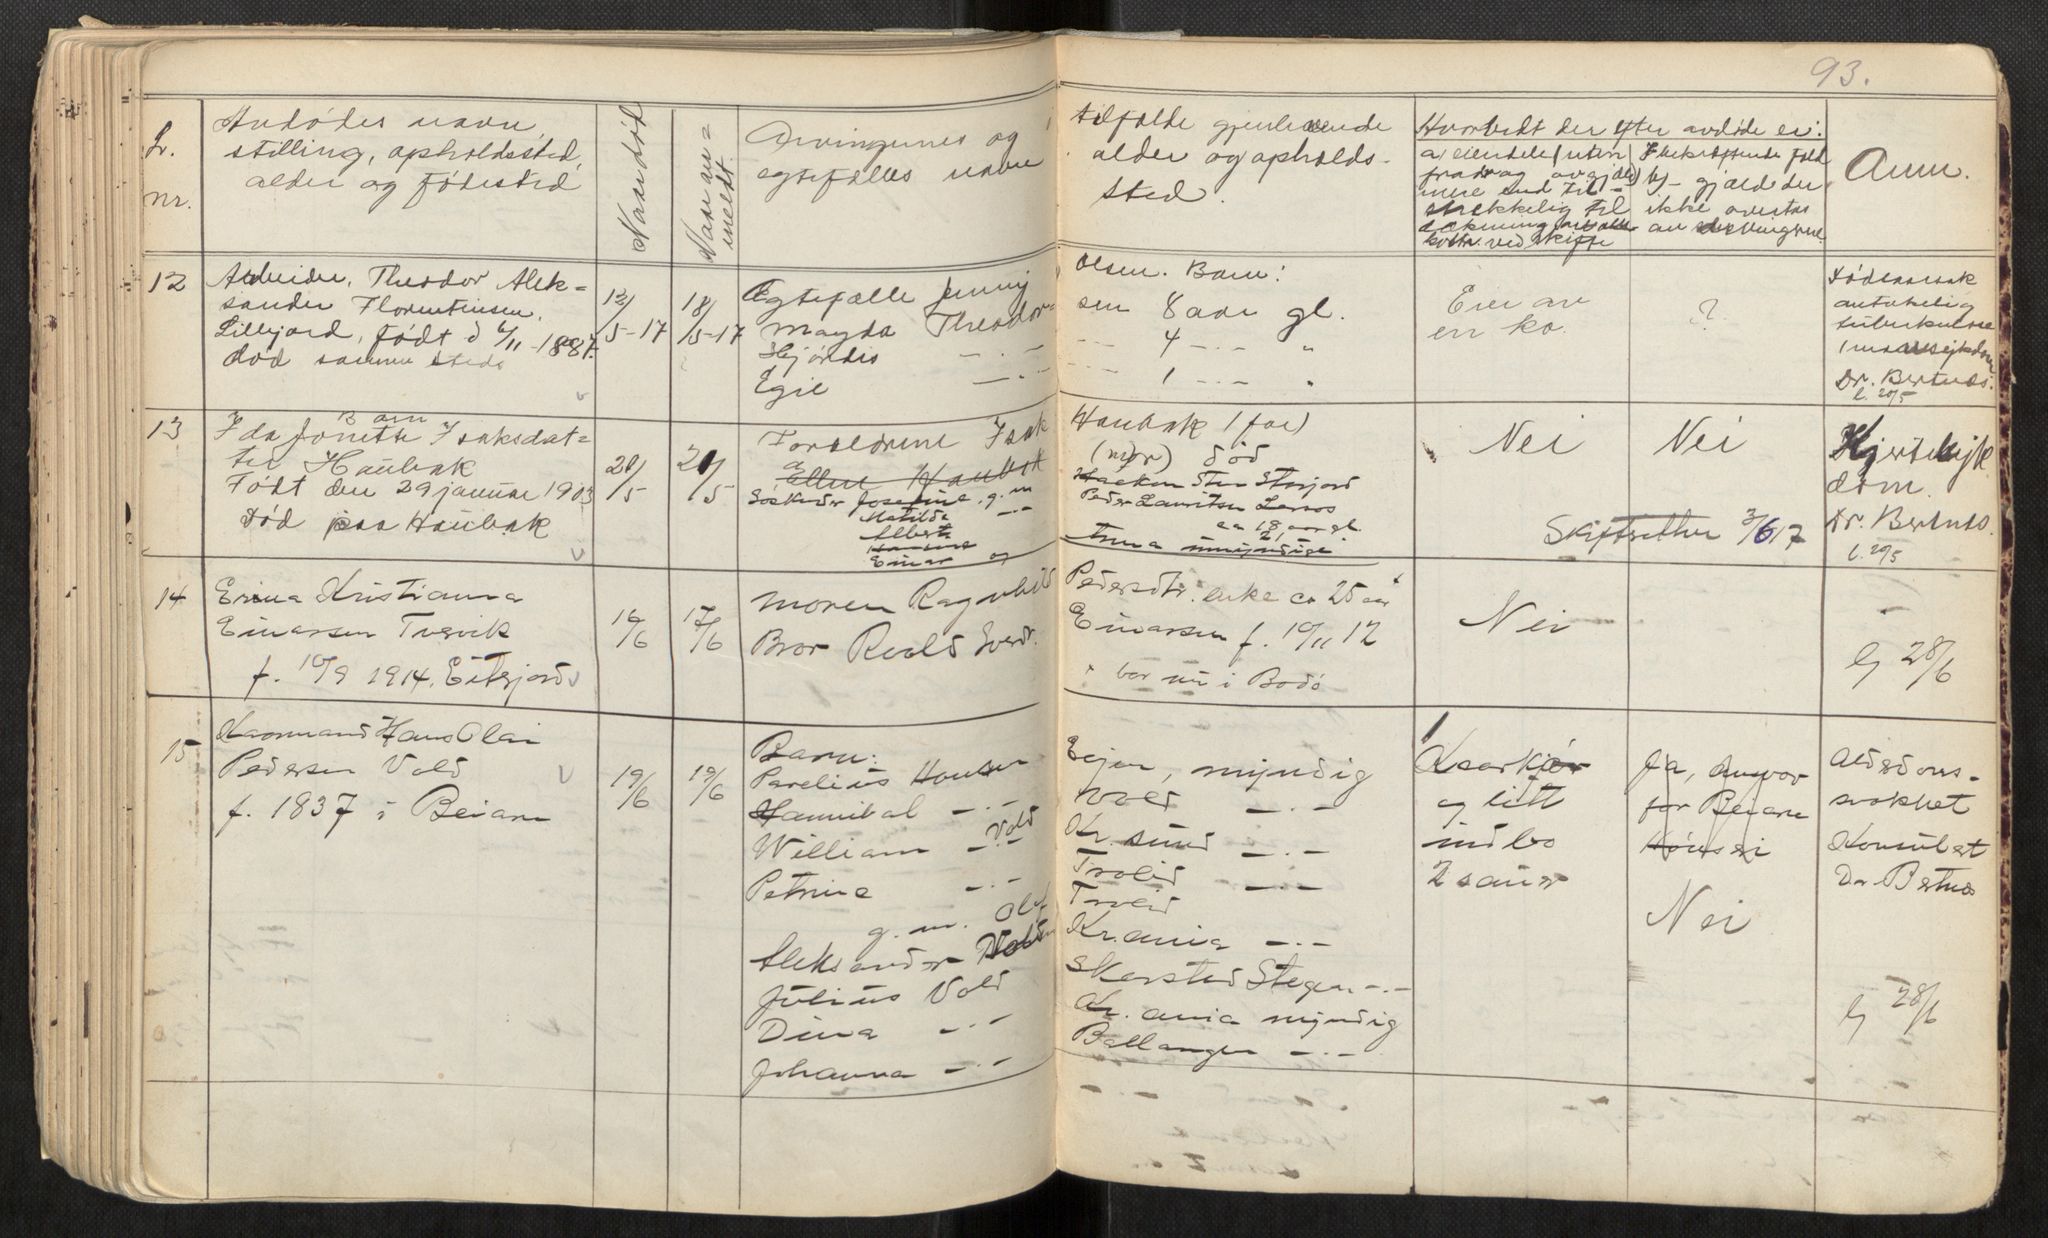 93.
Lr. nr.
Avdødes navn,
stilling, opholdssted,
alder og fødested
Naar død
Naar an=
meldt.
Arvingernes og
egtefælles navn
tilfælde gjenlevende
alder og opholds-
sted.
Hvorvidt der efter avdøde er:
a) eiendele (uten
fradrag av gjæld)
mere end til-
strekkelig til
dækning av
ved skifte
I bekræftende fald
b) - gjæld der
ikke overtas
av arvingerne
Anm.
12
Arbeider, Theodor Alek=
sander Florentinsen,
Lillejord, født d 6/11 1887.
død samme steds
12/
5-17
18/
5-17
Egtefælle Jenny
Magda Theodor=
Hjørdis -.-
Egil -.-
Olsen. Barn:
sen 8 aar gl.
--- 4 -.- "
--- 1 -.- "
Eier av
en ko.
?
Dødsaarsak
antakelig
tuberkuløse
Dr. Bertnæs.
l. 20/5
13
Barn
Ida Jonette Isaksdat=
ter Haubak
Født den 29 januar 1903
Død paa Haubak
20/5
20/5
Forældrene Isak
Ellen Haubak
Søskende Josefine, g.m
Matilda -.-
Albert
Einar og
Haubak (far)
(mor) død
Haakon Storjord
Peder Lauritsen
ca 18 aar gl.
21
umyndige
Nei
Nei
Skifteretten 2/6 17
Hjertesyk
dom.
Dr. Bertnæs.
l. 29/5
14
Erina Kristianna
Einarsen Tvervik
f. 10/9 1914. Eiterjord
16/6
17/6
Moren Ragnhild
Bror Roald
Pedersdtr. enke ca 25 aar
Einarsen f. 10/11 12
bor nu i Bodø
Nei
l 28/6
15
Kaarmand Hans Olai
Pedersen Vold
f. 1837 i Beiarn
19/6
19/6
Barn:
Parelius Hansen
Hannibal -.-
William Vold
Petrine -.-
g.m. Olaf
Aleksander Vold
Julius Vold
Dina -.-
Johanna -.-
Eijen, myndig
Vold -.-
Kr.sund -.-
Trolid -.-
Trolid
Kr.ania -.-
Skarstad Steigen -.-
Kr.ania myndig
Ballangen -.-
og litt
indbo
2 sauer
Ja, Ansvar
for Beiarn
Nei
Alderdoms-
svakhet
Konsulert
Dr Bertnæs
l 28/6